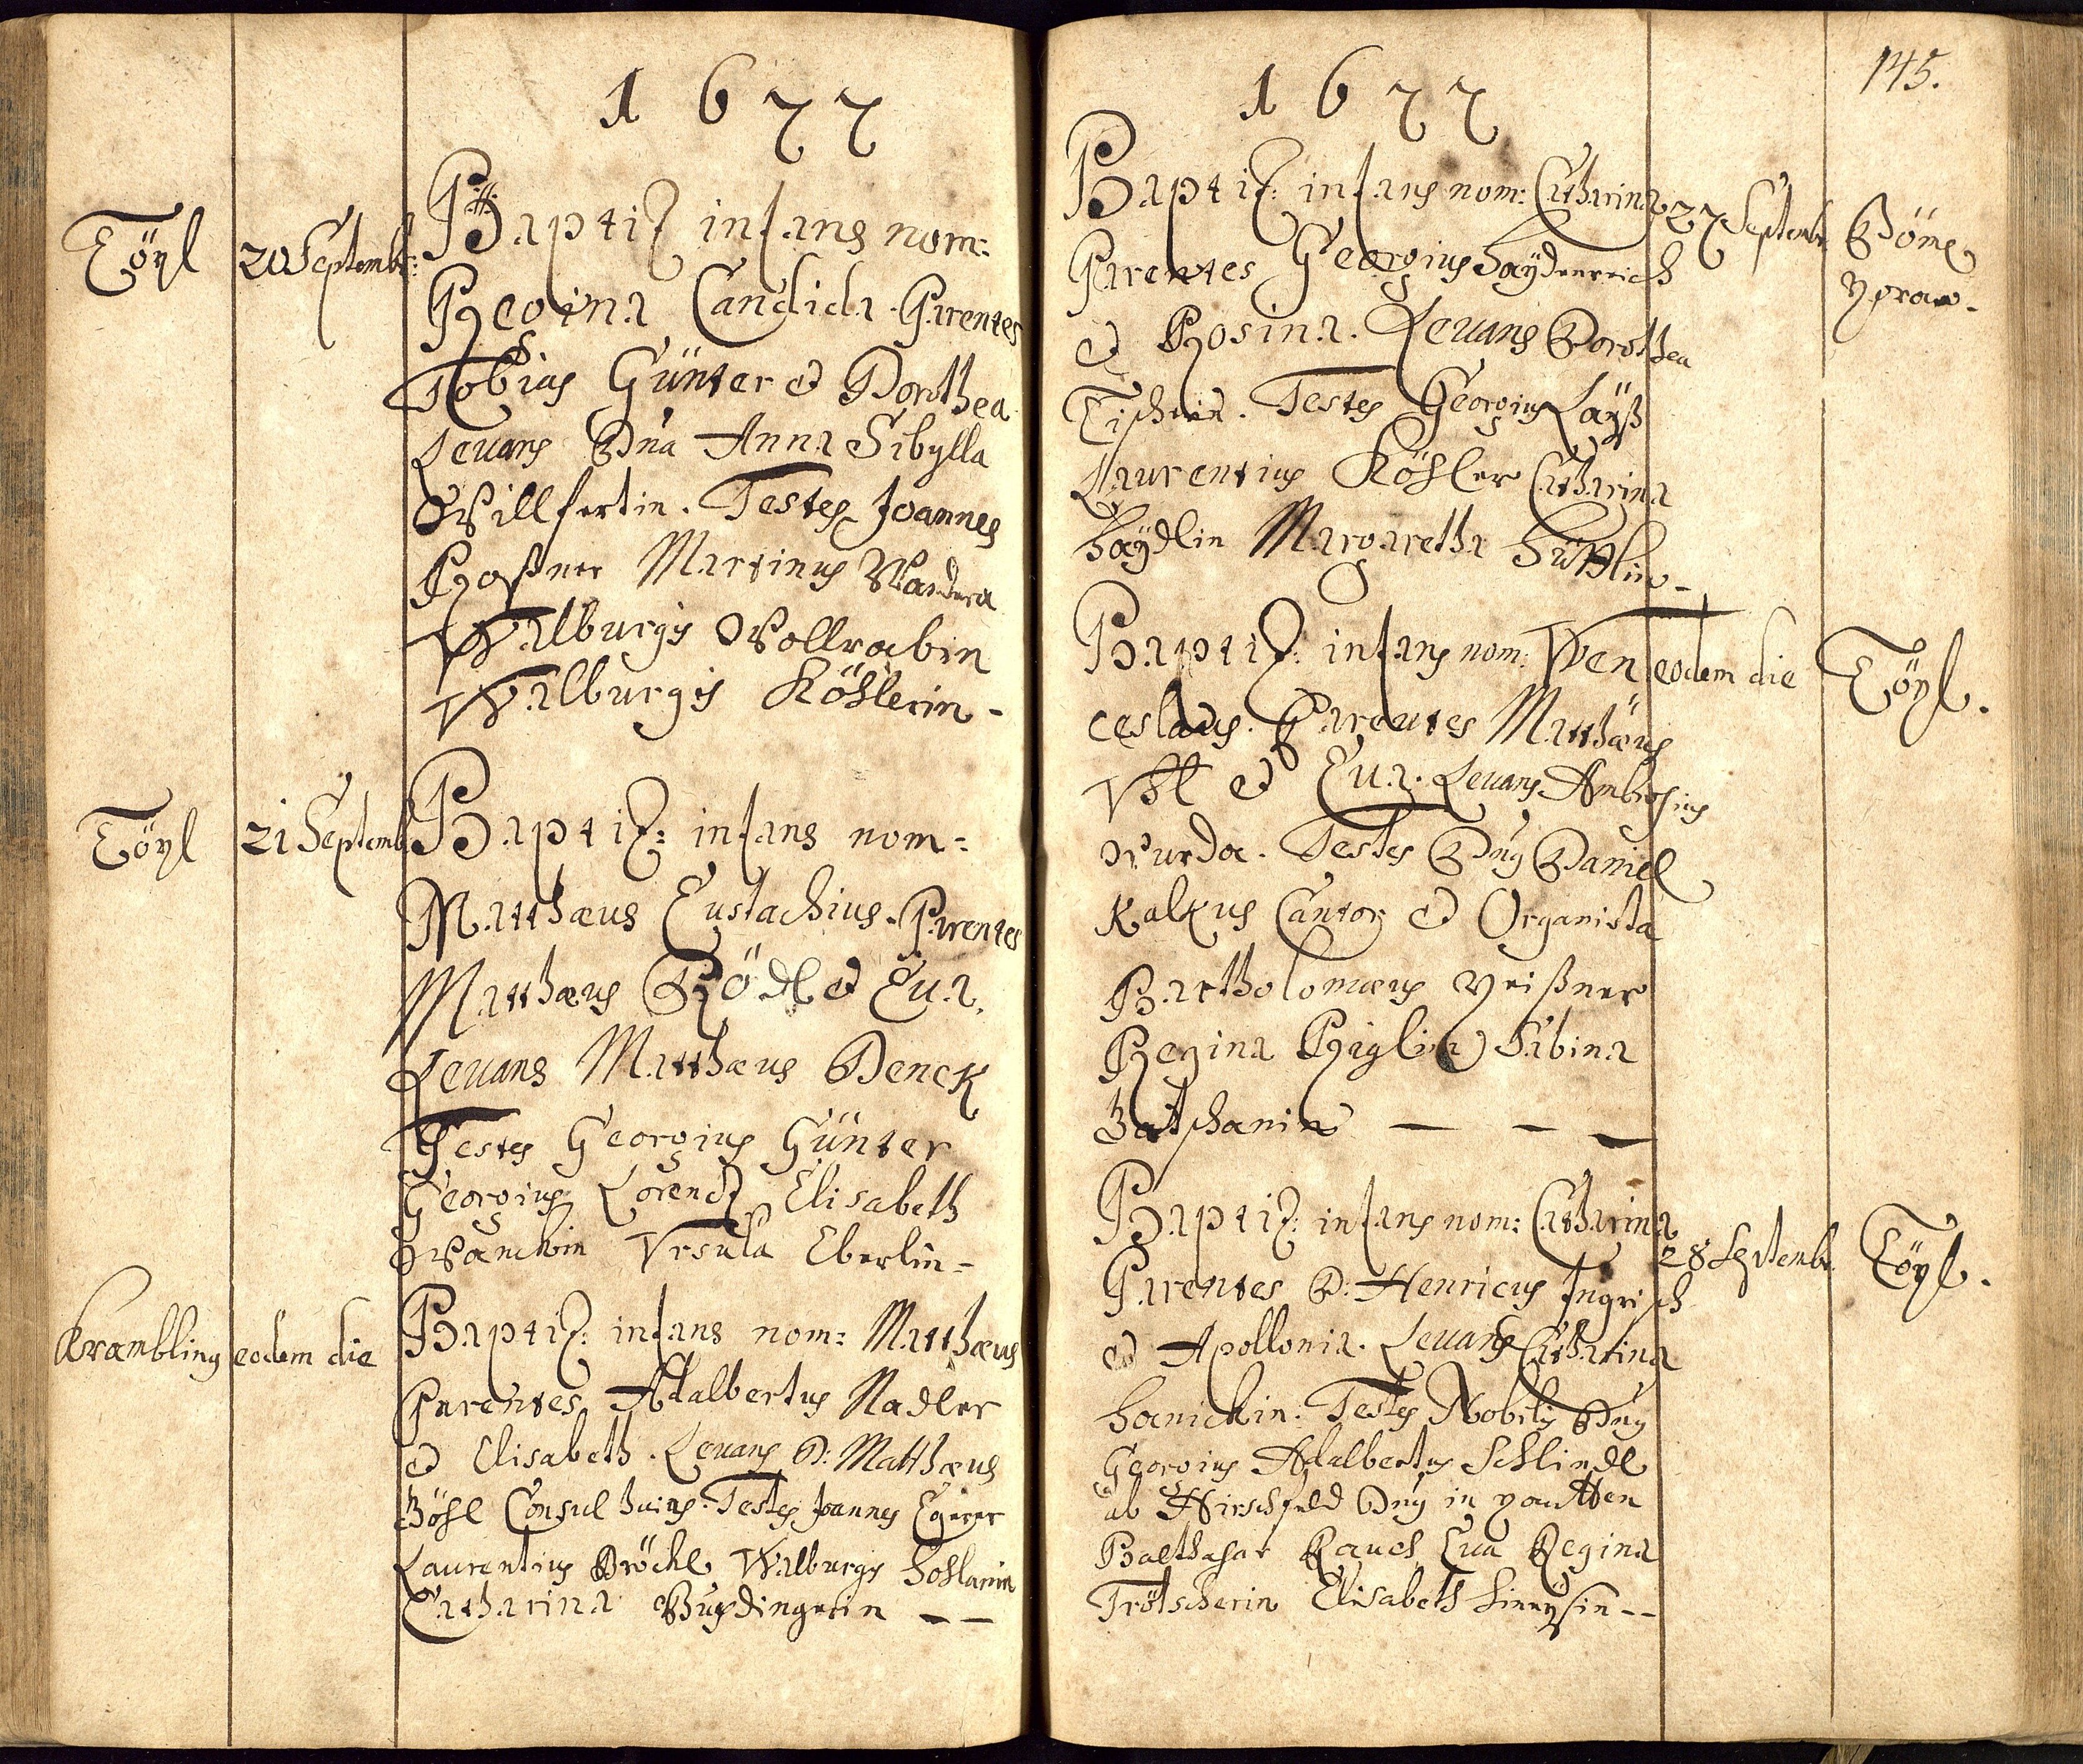 1677
Töyl 20 Septembr: Baptiz infans nom:
Regina Candida. Parentes
Tobias Günter et Dorothea
Levans Dna Anna Sibylla
Willfertin. Testes Joannes
Martinus
Walburgis Wollrabin
Walburgis Köhlerin -
Töyl 21 Septemb Baptiz: infans nom:
Matthæus Eustachius. Parentes
Matthæus Rödl et Eva.
Levans Matthæus Denck
Testes Georgius Günter
Georgius Lorentz Elisabeth
Wänckin Vrsula Eberlin -
Krambling eodem die Baptiz: infans nom: Matthæus
Parentes Adalbertus Nadler
et Elisabeth. Levans D: Matthæus
Böhl Consul huius. Testes Joannes Egerer
Laurentius Bröckl Walburgis
Catharina - -
145.
1677
Baptiz: infans nom: Catharina 27 Septembr. Böme
Parentes Georgius Haÿdenreich
et Rosina. Levans Dorothea
Tischerin. Testes Georgius Laÿß
Laurentius Köhler Catharina
Haÿdlin Margaretha -
Baptiz: infans nom: Wen eodem die Töyl.
ceslaus. Parentes Matthæus
Vhl et Eva. Levans Ambrosius
Wurda. Testes Dnus Daniel
Kalkus Cantor et Organista
Bartholomæus
Regina Sabina
- - -
Baptiz: infans nom: Catharina 28 Septembr. Töyl.
Parentes D: Henricus Ingrisch
et Apollonia. Levans Catharina
Hanickin. Testes Nobilis Dnus
Georgius Adalbertus Schlindl
ab Hirschfeld Dnus in
Balthasar Rauch Eva Regina
Trötscherin Elisabeth - -